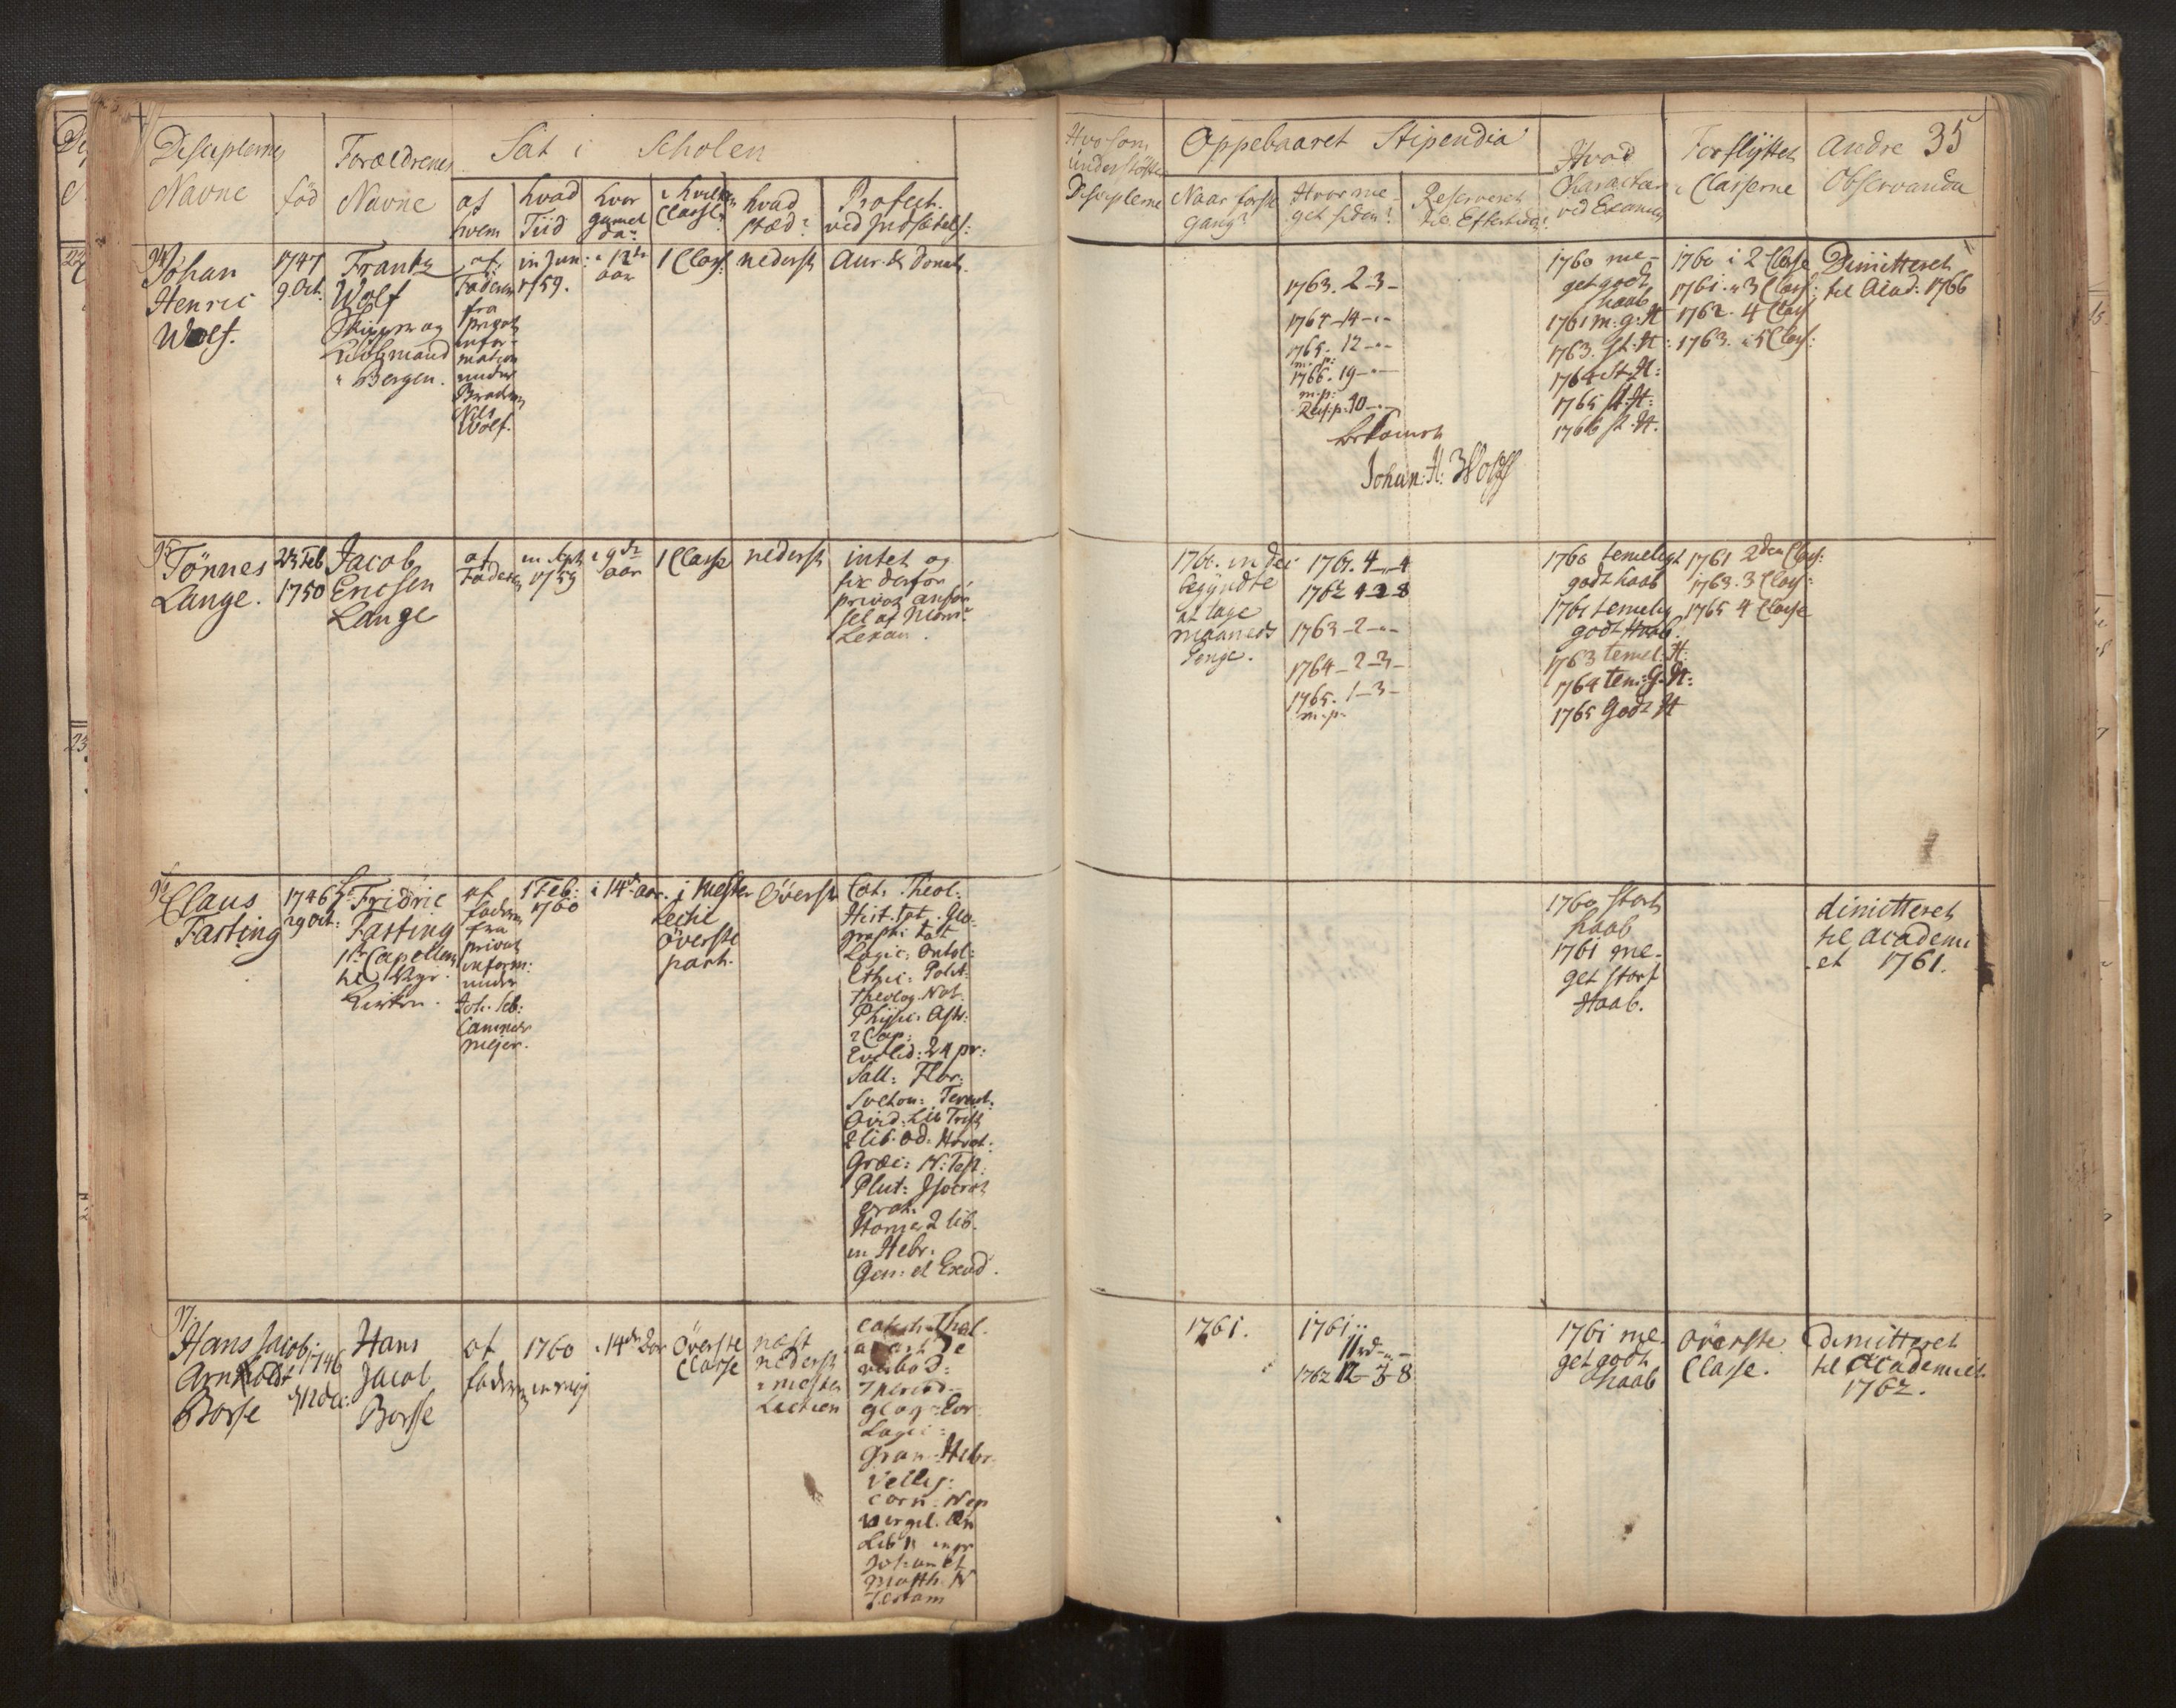 Disciplernes
Navne
fød
Forældrenes
Navne
Sat i Scholen
af
hvem
hvad
Tiid
hvor
gamel
da?
i hvilken
Classe?
hvad
stæd?
Profect.
ved Indsættels:
94
Johan
Henric
Wolf.
1747
9 Oct:
Frantz
Wolf
Skipper og
Kiøbmand
i Bergen.
af
Faderen
fra
privat
infor-
mation
under
Broderen
Nils
Wolf.
in Jun:
1759.
i 12te
aar
1 Class:
nederst
Aur. & Donat.
95
Tönnes
Lange.
23 Feb
1750
Jacob
Ericsen
Lange
af
Faderen
in Sept
1759
i 9de
aar
1 Classe
nederst
intet og
fik derfor
privat anför
sel af Mons:
Lexau.
96
Claus
Fasting
1746
29 Oct:
Hr Fridric
Fasting
1ste Capellan
til Nye
Kirken.
af
faderen
fra
privat
inform:
under
Joh. Seb:
Cammer
mejer.
1 Feb:
1760
i 14de aar.
i Mester
Lectie
överste
part.
Överst
Cat. Theol.
Hist. tot. Geo-
graph: tot
Logic: Ontol:
Ethic: Polit:
Theolog. Nat:
Physic: Astr:
2 Cap:
Euclid: 24 pr:
Sall: Flor:
Sueton: Terent:
Ovid: Lib Trist
2 lib. Od. Horat:
Græc: N: Test:
Plut: Isocrat
orat.
Homer 2 lib.
in Hebr:
Gen: et Exod.
97
Hans Jacob
Arnholdt
Borse
1746
Hans
Jacob
Borse
af
faderen
1760
in maj
i 14de aar
Överste
Classe
næst
nederst
i mester
Lectien
Logic:
Gram: Hebr.
Vellej:
Corn: Nep
Virgil. Æn
Matth. N
Testam
Hvo som
understötter
Disciplerne
Oppebaaret Stipendia
Naar förste
gang?
Hvor me-
get siden?
Reserveret
til Eftertiden?
Hvad
Character
ved Examen
Forflyttet
i Classerne
Andre 35
Observanda
1763. 2-3-
1764-14-"-
1765. 12-"-
m.p:
1766. 19-"-
m:p:
10-"-
bekomet
Johan: H: Wolff
1760 me-
get godt
haab
1761 m. g. H
1763. St: H:
1764 St. H:
1765 St. H:
1766 St. H.
1760 i 2 Classe
1761. " 3 Class:
1762. 4 Class
1763. i 5 Class:
Dimitteret
til Acad: 1766
begyndte
at tage
maaneds
Penge.
1761. 4-4
1762 4 2 8
1763-2-"-
1764-2-3-
1765. 1-3-
m.p.
1760 temeligt
godt haab
1761 temelig
godt Haab.
1763 temel. H:
1764 tem: G. H:
1765 Godt H
1761 2den Class:
1763. 3 Class:
1765 4 Classe
1760 stort
haab
1761 me-
get stort
Haab.
dimitteret
til academi
et 1761.
1761.
1761
11 rd-"-
1762 12-3-8
1761 me-
get godt
haab
överste
Classe.
Dimitteret
til academiet
1762.